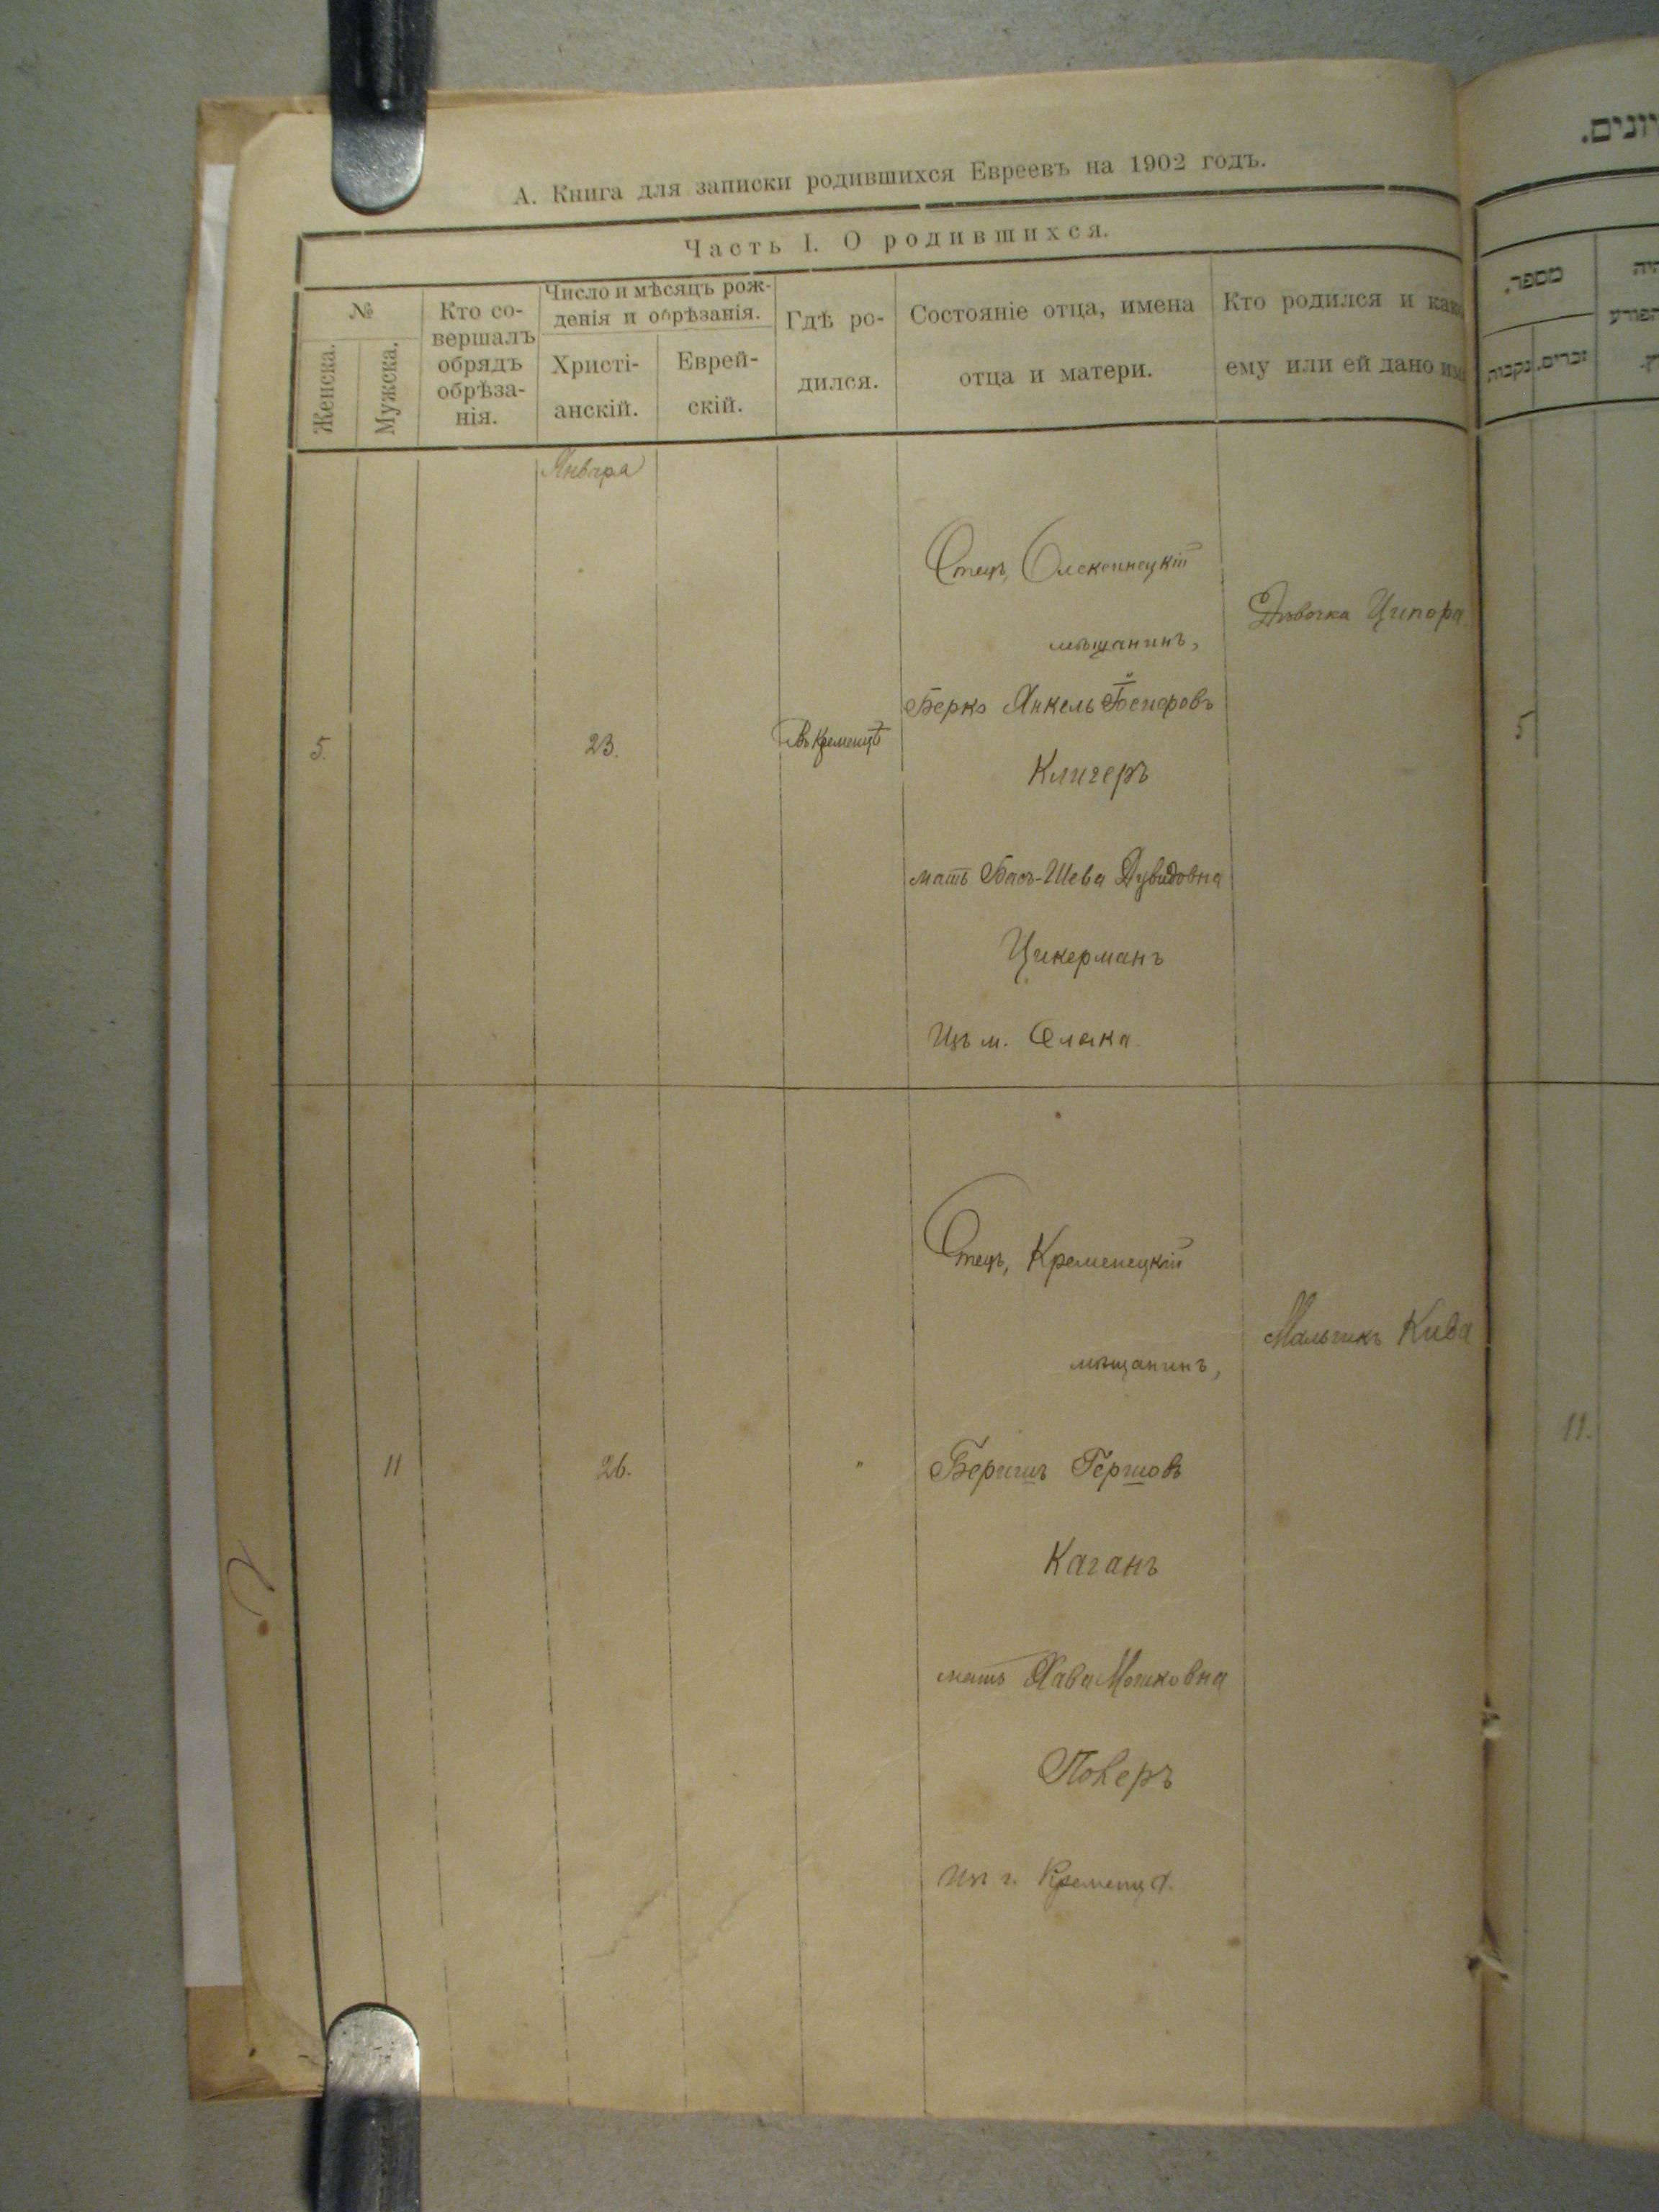 А. Книга для записки родившихся Евреевъ на 1902 годъ.
Часть I. О родившихся.
№
Женска.
Мужска.
Кто со-
вершалъ
обрядъ
обрѣза-
нія.
Число и мѣсяцъ рож-
денія и обрѣзанія.
Христі-
анскій.
Еврей-
скій.
Гдѣ ро-
дился.
Состояніе отца, имена
отца и матери.
Кто родился и как
ему или ей дано им
Января
5.
23.
въ Кременцѣ
Отецъ,
мѣщанинъ,
Берко Янкель
Клигеръ
мать Бася-Шева Дувидовна
Цукерманъ
Изъ м. Олыка.
Дѣвочка Ципора
11
26.
"
Отецъ, Кременецкій
мѣщанинъ,
Беришъ Гершовъ
Каганъ
мать Хава Мошковна
Поверъ
Изъ г. Кременца.
Мальчикъ Кива
יונים.
מספר.
זכרים.
נקבות
5
11.